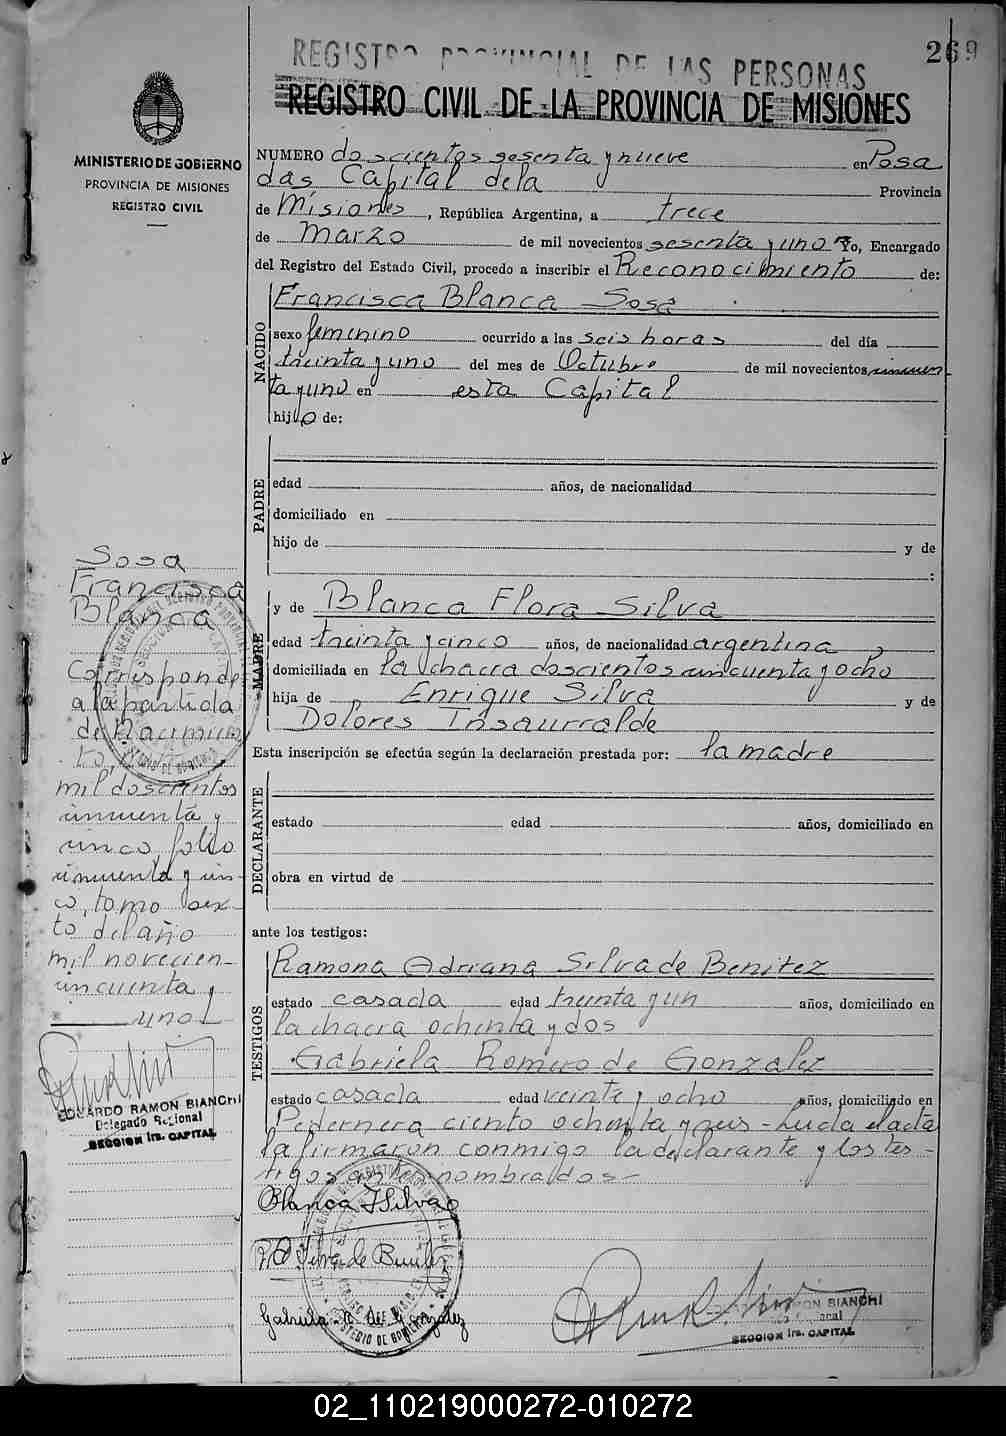 269
REGISTRO PROVINCIAL DE LAS PERSONAS
REGISTRO CIVIL DE LA PROVINCIA DE MISIONES
MINISTERIO DE GOBIERNO
PROVINCIA DE MISIONES
REGISTRO CIVIL
NUMERO doscientos sesenta y nueve en Posa
das Capital de la Provincia
de Misiones, República Argentina, a trece
de Marzo de mil novecientos sesenta y uno Yo, Encargado
del Registro del Estado Civil, procedo a inscribir el Reconocimiento de:
NACIDO
Francisca Blanca Sosa
sexo femenino ocurrido a las seis horas del día
treinta y uno del mes de Octubre de mil novecientos cincuen-
ta y uno en esta Capital
hija de:
PADRE
edad años, de nacionalidad
domiciliado en
hijo de y de
:
MADRE
y de Blanca Flora Silva
edad treinta y cinco años, de nacionalidad argentina,
domiciliada en la chacra doscientos cincuenta y ocho
hija de Enrique Silva y de
Dolores Insaurralde
Esta inscripción se efectúa según la declaración prestada por: la madre
DECLARANTE
estado edad años, domiciliado en
obra en virtud de
ante los testigos:
TESTIGOS
Ramona Adriana Silva de Benitez
estado casada edad treinta y un años, domiciliado en
la chacra ochenta y dos
Gabriela Romero de Gonzalez
estado casada edad veinte y ocho años, domiciliado en
Pedernera ciento ochenta y seis - Leida el acta
la firmaron conmigo la declarante y los tes-
tigos nombrados-
Blanca F Silva
de
Gabriela R. de Gonzalez
Sosa
Francisca
Blanca
Corresponde
a la partida
de Nacimien
to,
mil doscientos
cincuenta y
cinco, folio
cincuenta y cin-
co, tomo sex-
to del año
mil novecien-
cincuenta y
uno
EDUARDO RAMON BIANCHI
Delegado Regional
SECCION 1ra. CAPITAL
RAMON BIANCHI
SECCION 1ra. CAPITAL
02_110219000272-010272